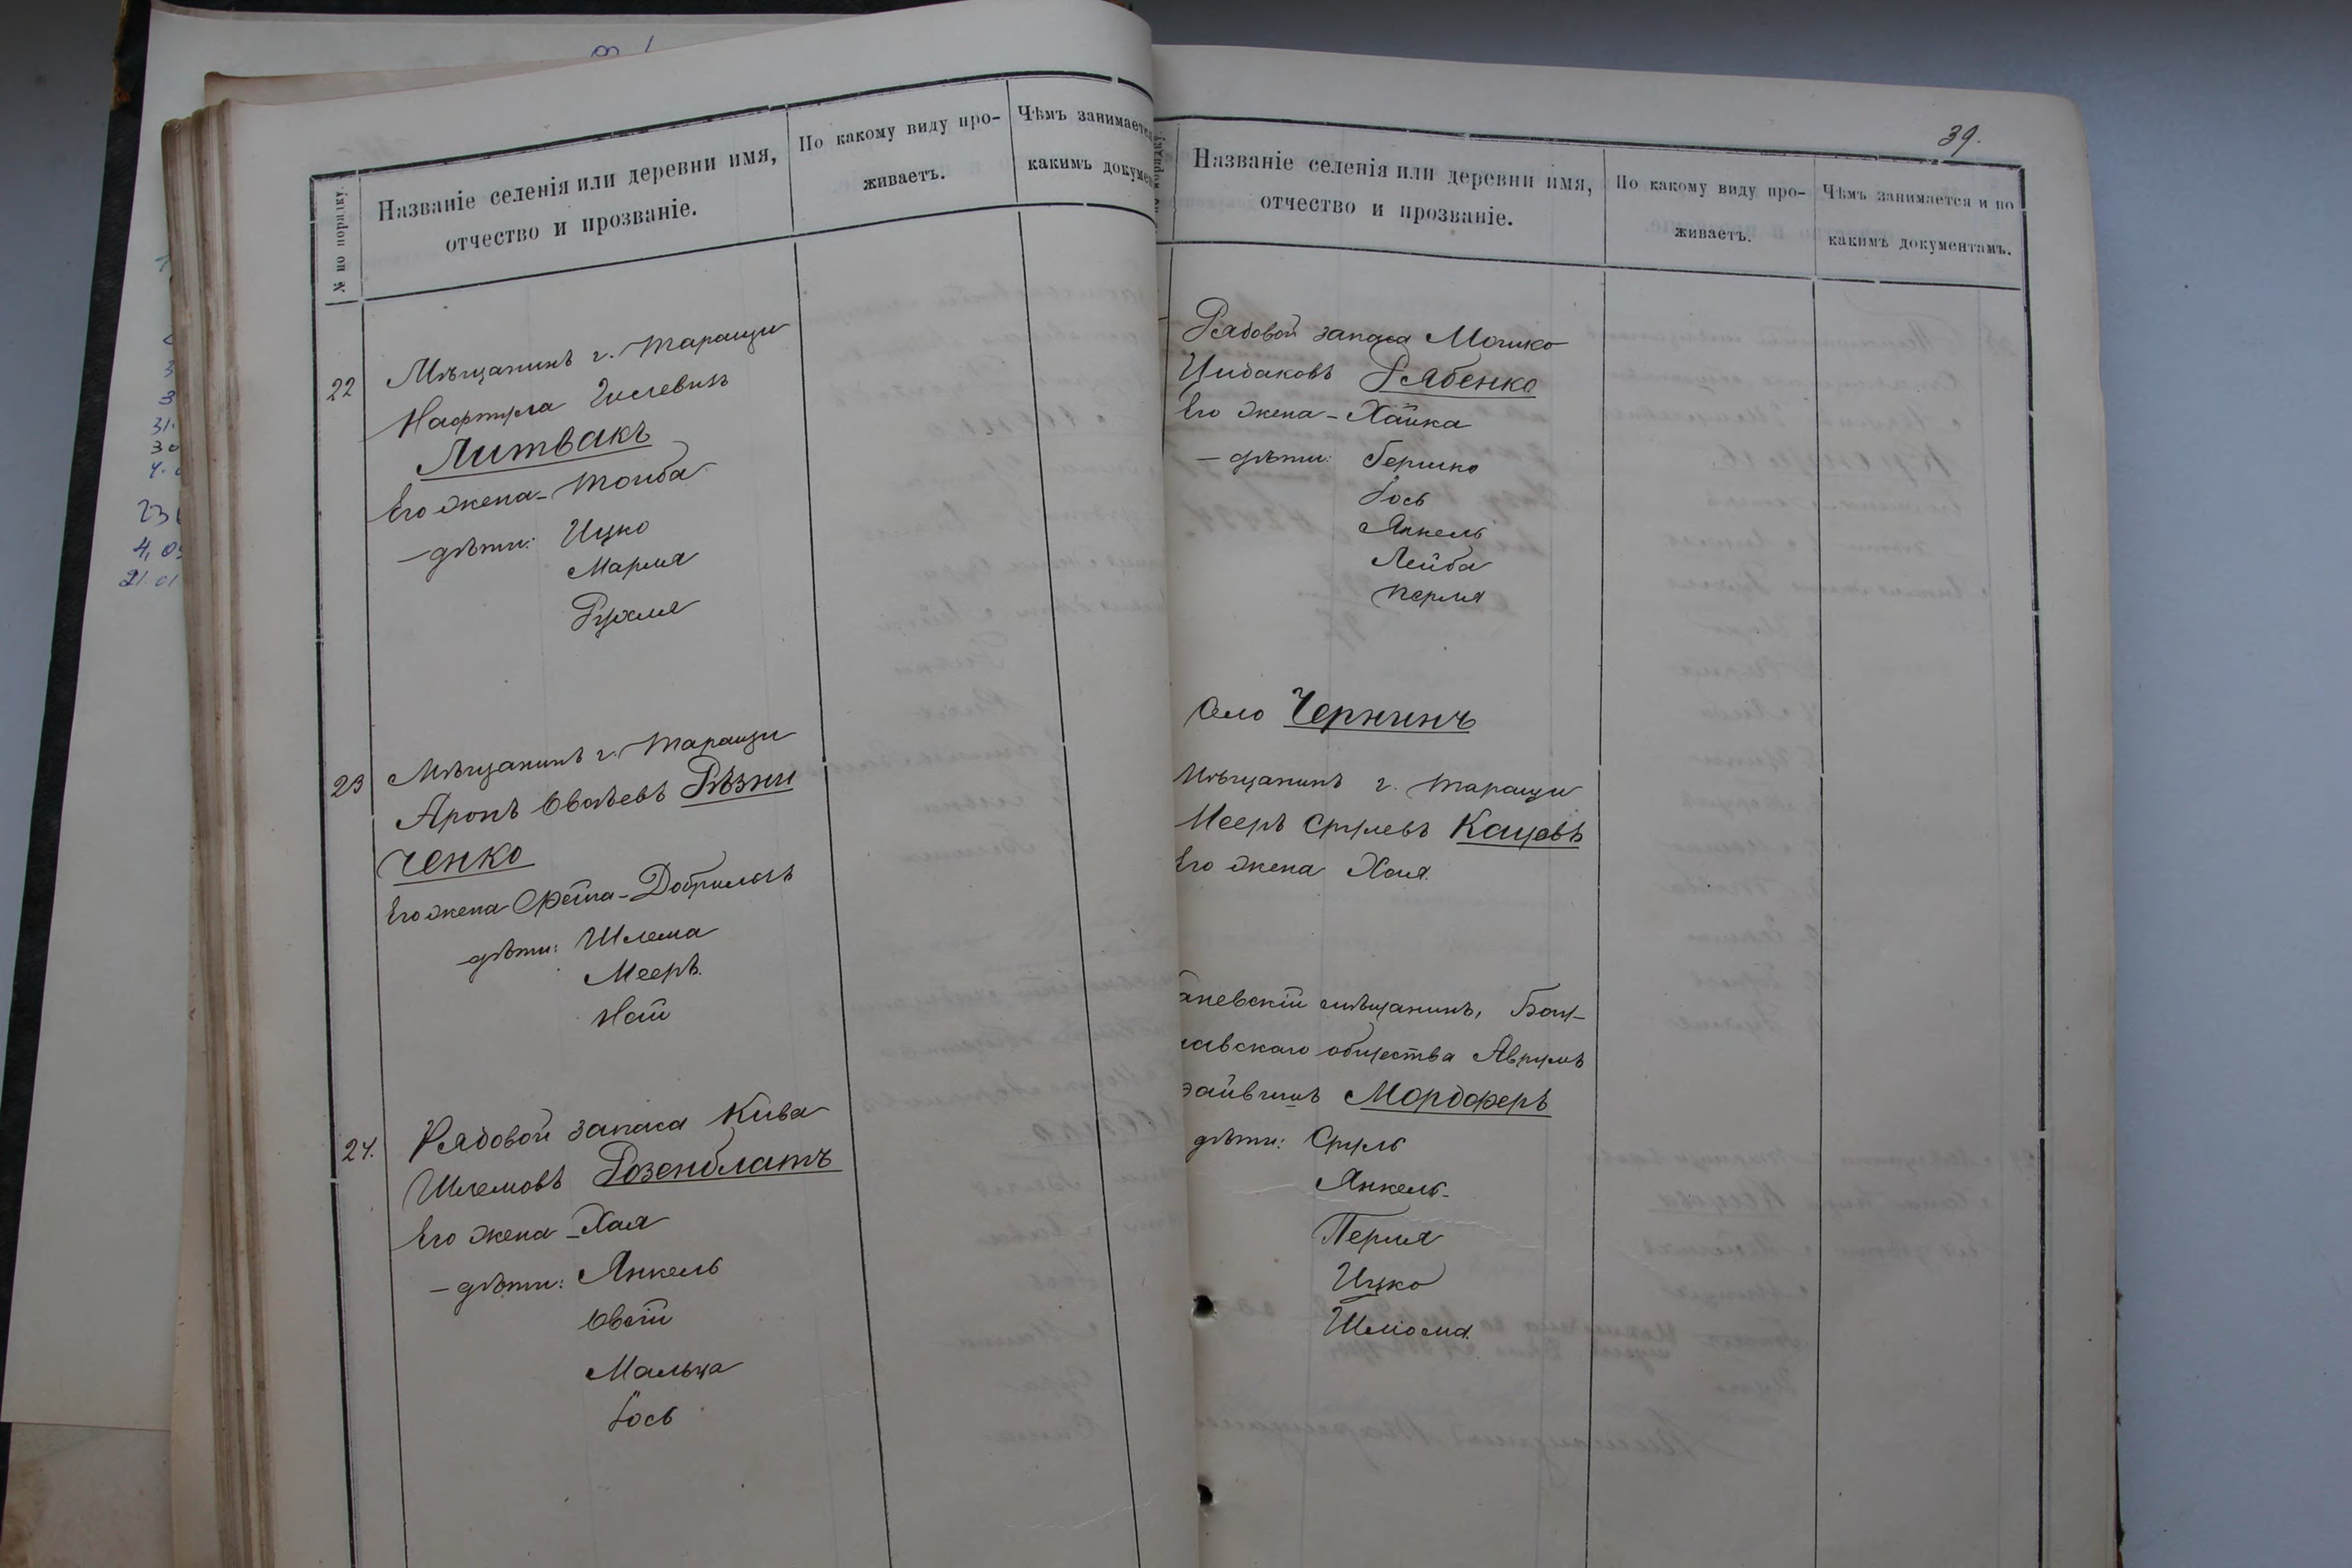 № по порядку.
Названіе селенія или деревни имя,
отчество и прозваніе.
По какому виду про-
живаетъ.
Чѣмъ занимаетс
какимъ докумен
22
Мѣщанинъ г. Таращи
Нафтула
Литвакъ
Его жена - Тойба
- дѣти: Ицко
Мария
Рухля
23
Мѣщанинъ г. Таращи
Аронъ Овсѣевъ Рѣзни
ченко
Его жена Фейга - 
дѣти: Шлема
Мееръ.
24.
Рядовой запаса Кива
Шлемовъ Розенблатъ
Его жена - Хая
- дѣти: Янкель
Овсій
Мальця
Іось
39.
Названіе селенія или деревни имя,
отчество и прозваніе.
По какому виду про-
живаетъ.
Чѣмъ занимается и по
какимъ документамъ.
Рядовой запаса Мошко
Цидаковъ Рябенко
Его жена - Хайка
- дѣти: Бершко
Іось
Янкель
Лейба
Перля
Село Чернинъ
Мѣщанинъ г. Таращи
Мееръ Срулевъ Кацевъ
Его жена Хая
аневскій мѣщанинъ, Богу-
лавскаго общества Аврумъ
Мордферъ
дѣти: Сруль
Янкель
Перля
Ицко
Шліома
31.
30
4.0
23
4.0
21.01